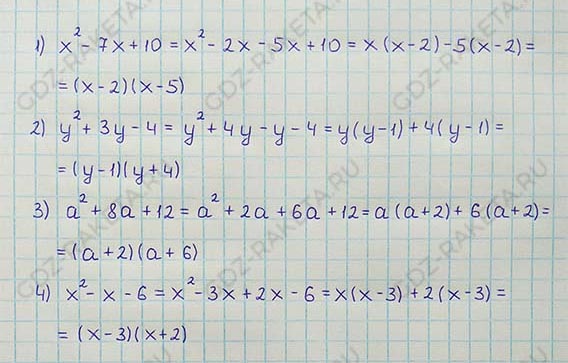 1) x² - 7x + 10 = x² - 2x - 5x + 10 = x (x - 2) - 5(x - 2) =
= (x - 2)(x - 5)
2) y² + 3y - 4 = y² + 4y - y - 4 = y(y - 1) + 4(y - 1) =
= (y - 1)(y + 4)
3) a² + 8a + 12 = a² + 2a + 6a + 12 = a (a + 2) + 6(a + 2) =
= (a + 2)(a + 6)
4) x² - x - 6 = x² - 3x + 2x - 6 = x(x - 3) + 2(x - 3) =
= (x - 3)(x + 2)
GDZ-RAKETA.RU